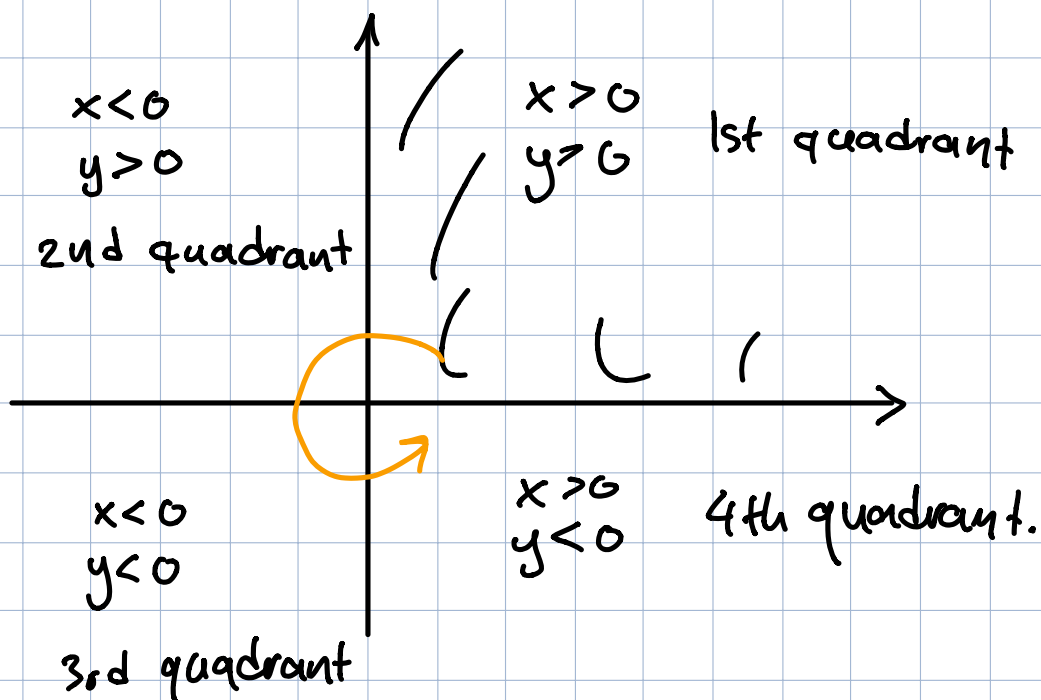 x<0
y>0
2nd quadrant
x>0
y>0
1st quadrant
x<0
y<0
3rd quadrant
x>0
y<0
4th quadrant.